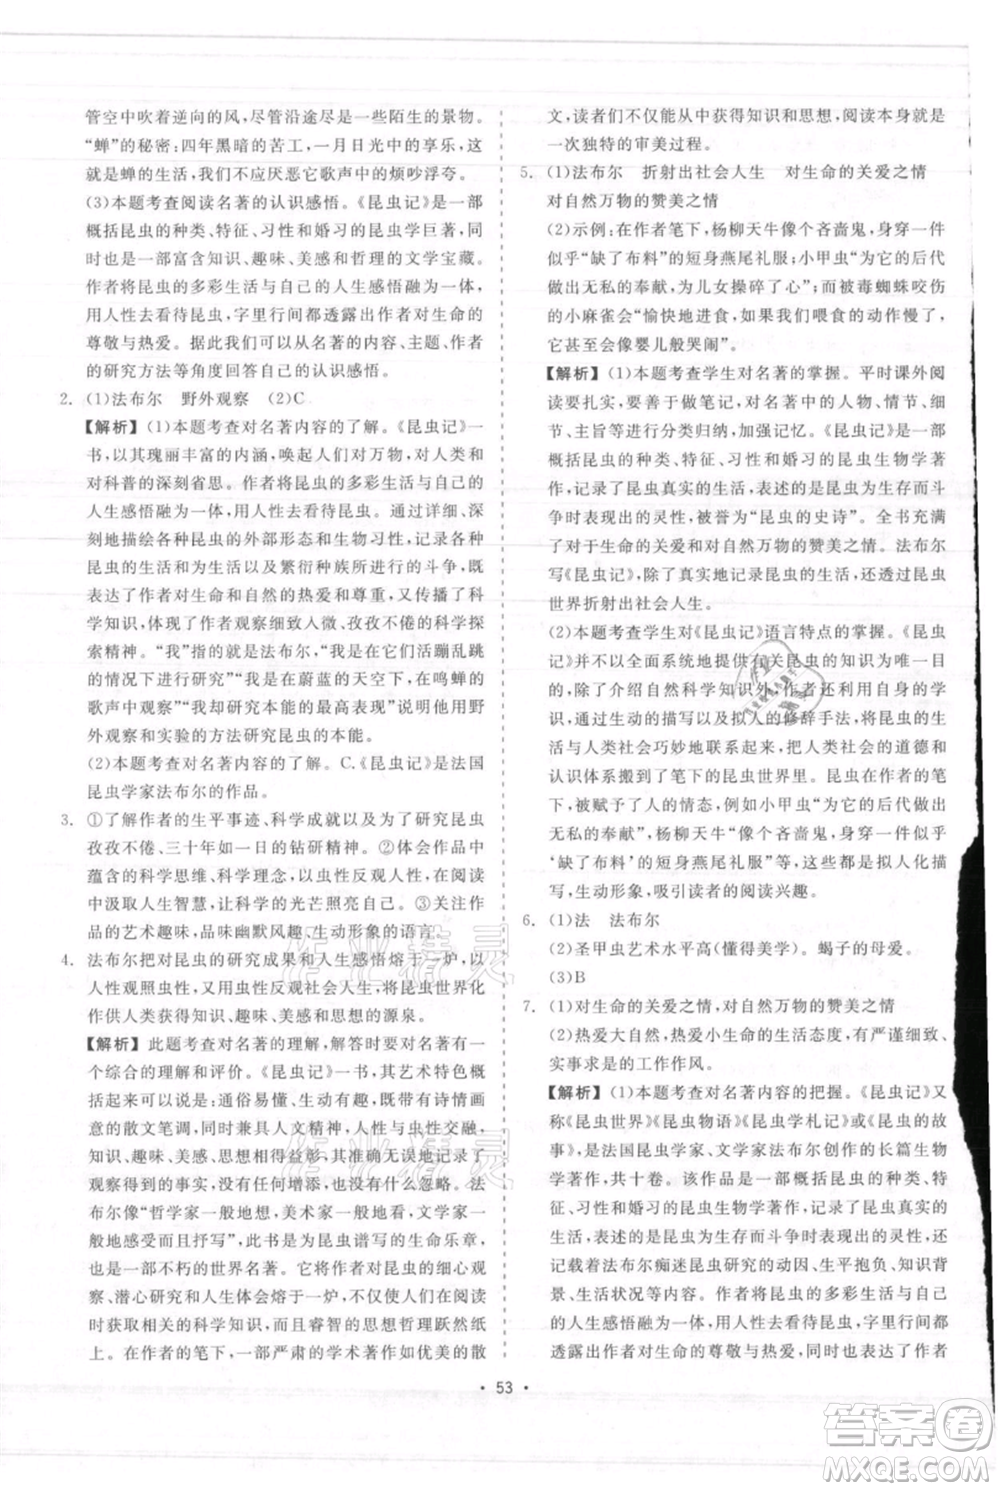 管空中吹着逆向的风,尽管沿途尽是一些陌生的景物。
“蝉”的秘密:四年黑暗的苦工,一月日光中的享乐,这
就是蝉的生活,我们不应厌恶它歌声中的烦吵浮夸。
(3)本题考查阅读名著的认识感悟。《昆虫记》是一部
概括昆虫的种类、特征、习性和婚习的昆虫学巨著,同
时也是一部富含知识、趣味、美感和哲理的文学宝藏。
作者将昆虫的多彩生活与自己的人生感悟融为一体,
用人性去看待昆虫,字里行间都透露出作者对生命的
尊敬与热爱。据此我们可以从名著的内容、主题、作者
的研究方法等角度回答自己的认识感悟。
2. (1)法布尔 野外观察 (2)C
【解析】(1)本题考查对名著内容的了解。《昆虫记》一
书,以其瑰丽丰富的内涵,唤起人们对万物、对人类、
对科普的深刻省思。作者将昆虫的多彩生活与自己的
人生感悟融为一体,用人性去看待昆虫。通过详细、深
刻地描绘各种昆虫的外部形态和生物习性,记录各种
昆虫的生活和它们为生活以及繁衍种族所进行的斗争,
表达了作者对生命和自然的热爱和尊重,又传播了科
学知识,体现了作者观察细致入微、孜孜不倦的科学探
索精神。“我”的指的就是法布尔,“我是在它们活蹦乱跳
的情况下进行研究”“我是在蔚蓝的天空下,在鸣蝉的
歌声中观察”“我却研究本能的最高表现”表现了用野
外观察和实验的方法研究昆虫的本能。
(2)本题考查对名著内容的了解。C.《昆虫记》是法国
昆虫学家法布尔的作品。
3. ①了解作者的生平事迹、科学成就以及为了研究昆虫
孜孜不倦、三十年如一日的钻研精神。②体会作品中
蕴含的科学思维、科学理念,以虫性反观人性,在阅读
中汲取人生智慧,让科学的光芒烛照自己。③关注作
品的艺术趣味,品味幽默风趣、生动形象的语言。
4. 法布尔把对昆虫的研究成果和人生感悟熔于一炉,以
人性观照虫性,以虫性反观社会人生,将昆虫世界化
作供人类获得知识、趣味、美感和思想的源泉。
【解析】此题考查对名著的理解,解答时要对名著内容
有个综合的理解和评价。《昆虫记》一书,其艺术特色概
括起来,应该是:通俗易懂、生动有趣,散发着诗情画
意的散文笔调,同时兼具人文精神,虫性人性交融,知
识、趣味、美感、思想相得益彰,其准确无误地记录了
观察得到的事实,既没有任何添加,也没有什么忽略。法
布尔像“哲学家一般地想,美术家一般地看,文学家一
般地感受而且抒写”,他为昆虫谱写的生命乐章,
也是一部不朽的世界名著。它将对昆虫的细心观
察、潜心研究和人生体会熔于一炉,不仅使人们在阅读
时获取丰富的科学知识,而且睿智的思想哲理跃然纸
上。在作者的笔下,一部严肃的学术著作如优美的散
文,读者们不仅能从中获得知识和思想,阅读本身就是
一次独特的审美过程。
5. (1)法布尔 折射出社会人生 对生命的关爱之情
对自然万物的赞美之情
(2)示例:在作者笔下,杨柳天牛像个吝啬鬼,身穿一
件似乎“缺了布料”的短身燕尾礼服;小甲虫“为它的后代
做出无私的奉献,为儿女操碎了心”;而被毒蜘蛛咬伤
的小麻雀会“愉快地进食,如果我们喂食的动作慢了,
它甚至会像婴儿般哭闹”。
【解析】(1)本题考查学生对名著的掌握。平时课外阅
读要扎实,要善于做笔记,对名著中的人物、情节、细
节、主旨等进行分类归纳,加强记忆。《昆虫记》是一部
概括昆虫的种类、特征、习性和婚习的昆虫生物学著
作,记录了昆虫真实的生活,表述的是昆虫为生存而斗
争时表现出的灵性,被誉为“昆虫的史诗”。全书充满
了对于生命的关爱和对自然万物的赞美之情。法布尔
写《昆虫记》,除了真实地记录昆虫的生活,还透过昆虫
世界折射出社会人生。
(2)本题考查学生对《昆虫记》语言特点的掌握。《昆虫
记》不仅以全面系统地提出有关昆虫的知识为读者所
青睐,除了介绍自然科学知识外,作者还利用自身的学
识,通过生动的描写以及拟人的修辞手法,将昆虫的生
活与人类社会巧妙地联系起来,把人类社会的道德和
认识体系搬到了笔下的昆虫世界里。昆虫在作者的笔
下,也被赋予了人的情态,例如小甲虫“为它的后代做出
无私的奉献”,杨柳天牛“像个吝啬鬼,身穿一件似乎
‘缺了布料’的短身燕尾礼服”等。这些都采用拟人化描
写,生动形象,吸引读者的阅读兴趣。
6. (1)法 法布尔
(2)圣甲虫艺术水平高(懂得美学)。蝎子的母爱。
(3)B
7. (1)对生命的关爱之情,对自然万物的赞美之情
(2)热爱大自然,热爱小生命的生活态度,有严谨细致、
实事求是的工作作风。
【解析】(1)本题考查对名著内容的把握。《昆虫记》又
称《昆虫世界》《昆虫物语》《昆虫学札记》或《昆虫的故
事》,是法国昆虫学家、文学家法布尔创作的长篇生物
学著作,共十卷。该作品是一部概括昆虫的种类、特
征、习性和婚习的昆虫生物学著作,记录了昆虫真实的
生活,表述的是昆虫为生存而斗争时表现出的灵性,还
记载着法布尔痴迷昆虫研究的动因、生平抱负、知识背
景、生活状况等等内容。作者将昆虫的多彩生活与自
己的人生感悟融为一体,用人性去看待昆虫,字里行间都
透露出作者对生命的尊敬与热爱,同时也可以表现作者
• 53 •
作业精灵
作业精灵
答案卷
MXQE.COM